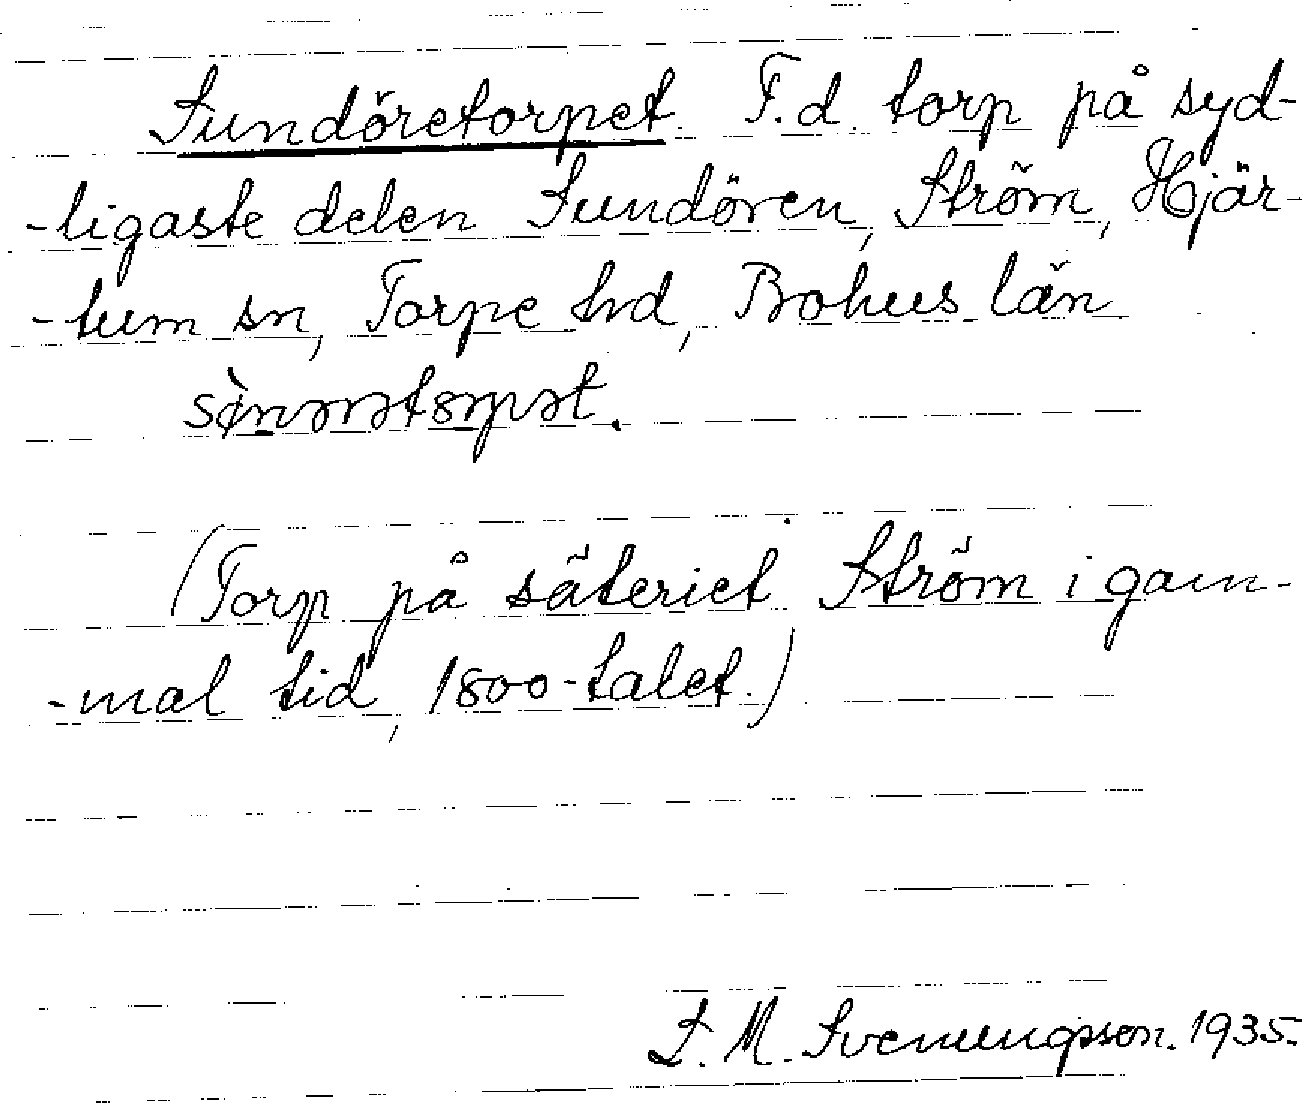 Sundöretorpet. F.d. torp på syd-
-ligaste delen Sundören, Ström, Hjär-
-tum sn, Torpe hd, Bohus län
(Torp på säteriet Ström i gam-
-mal tid, 1800-talet.)
L. M. Svenungsson. 1935.